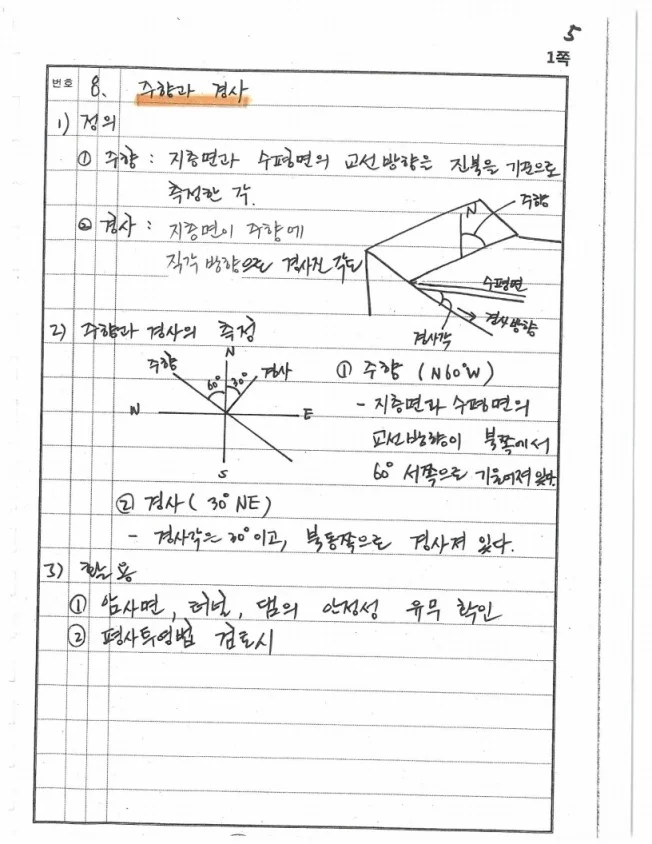 5
1쪽
번호 8. 주향과 경사
1) 정의
① 주향 : 지층면과 수평면의 교선방향은 진북을 기준으로
측정한 각.
② 경사 : 지층면이 주향에
직각 방향으로 경사진 각도
주향
N
수평면
경사방향
경사각
2) 주향과 경사의 측정
주향
N
경사
60° 30°
N
E
S
① 주향 (N60°W)
- 지층면과 수평면의
교선방향이 북쪽에서
60° 서쪽으로 기울어져 있다.
② 경사 ( 30° NE)
- 경사각은 30°이고, 북동쪽으로 경사져 있다.
3) 활용
① 암사면, 터널, 댐의 안정성 유무 확인
② 평사투영법 검토시